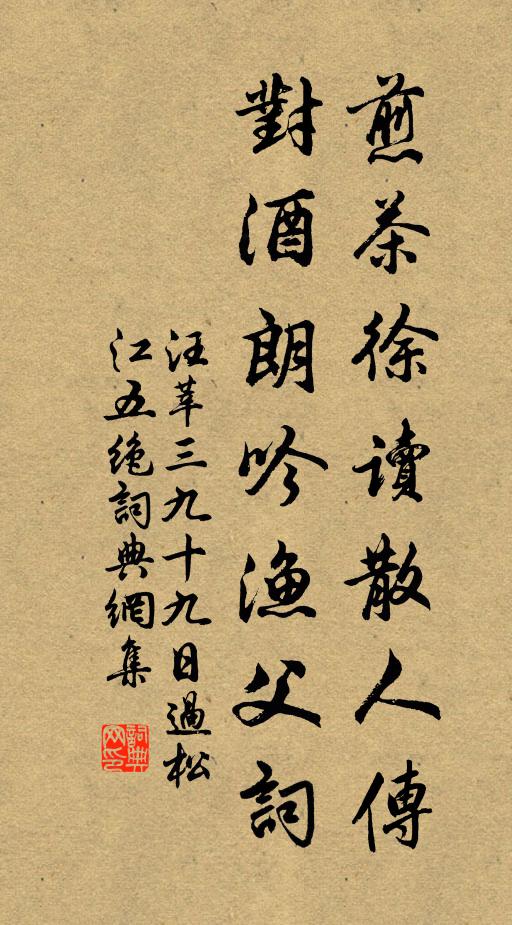 煎茶徐讀散人傳
對酒朗吟漁父詞
汪莘三九十九日過松
江五絶詞典網集
詞典網印